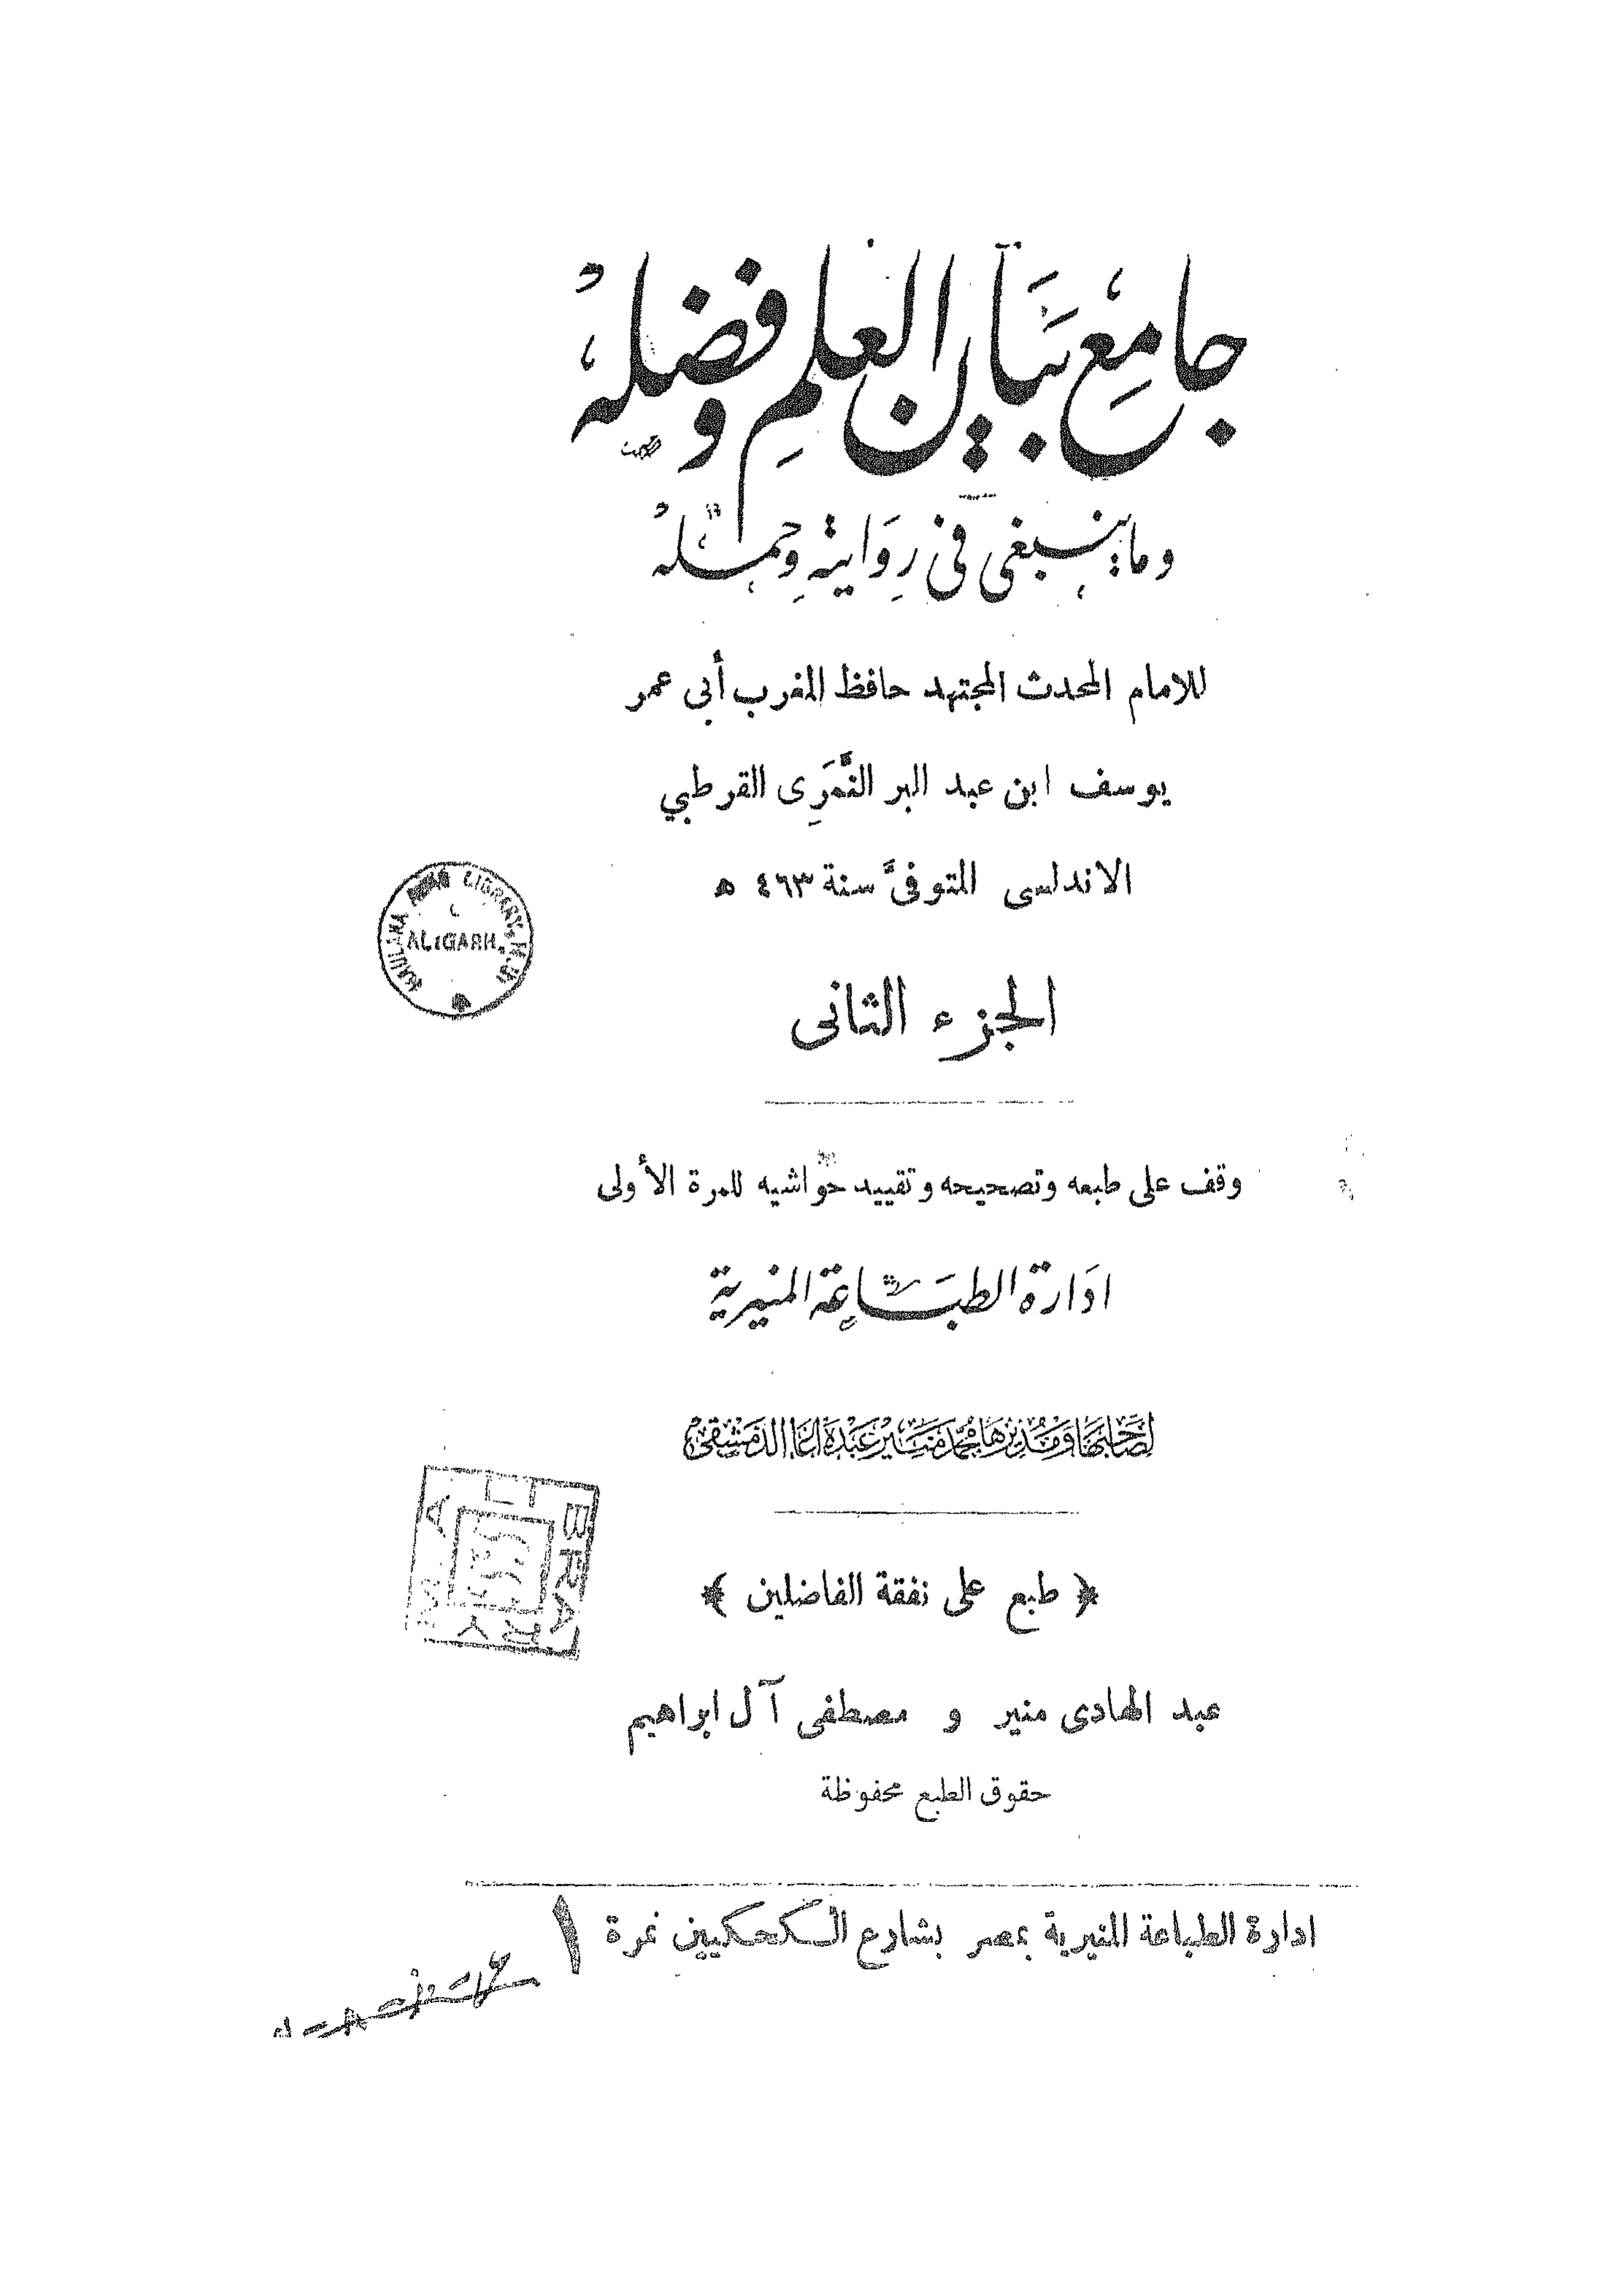 جامِع بَيَان العلمِ وفضلهْ
وما ينبغى فى رِوَايتهِ وحملهْ
للامام المحدث المجتهد حافظ المغرب أبى عمر
يوسف ابن عبد البر النَّمَرِى القرطبي
الاندلسى المتوفىَّ سنة ٤٦٣ ه
MAULANA AZAD LIBRARY, M.U.
ALIGARH.
الجزء الثانى
وقف على طبعه وتصحيحه وتقييد حواشيه للمرة الأولى
ادَارة الطبَاعِة المنيرية
لصَاحبهَا ومُديرهَا محمَّد منيْر عَبْدَه اغَا الدمَشقىْ
LIBRARY
﴿ طبع على نفقة الفاضلين ﴾
عبد الهادى منير و مصطفى آل ابراهيم
حقوق الطبع محفوظة
ادارة الطباعة المنيرية بمصر بشارع الكحكيين نمرة ١